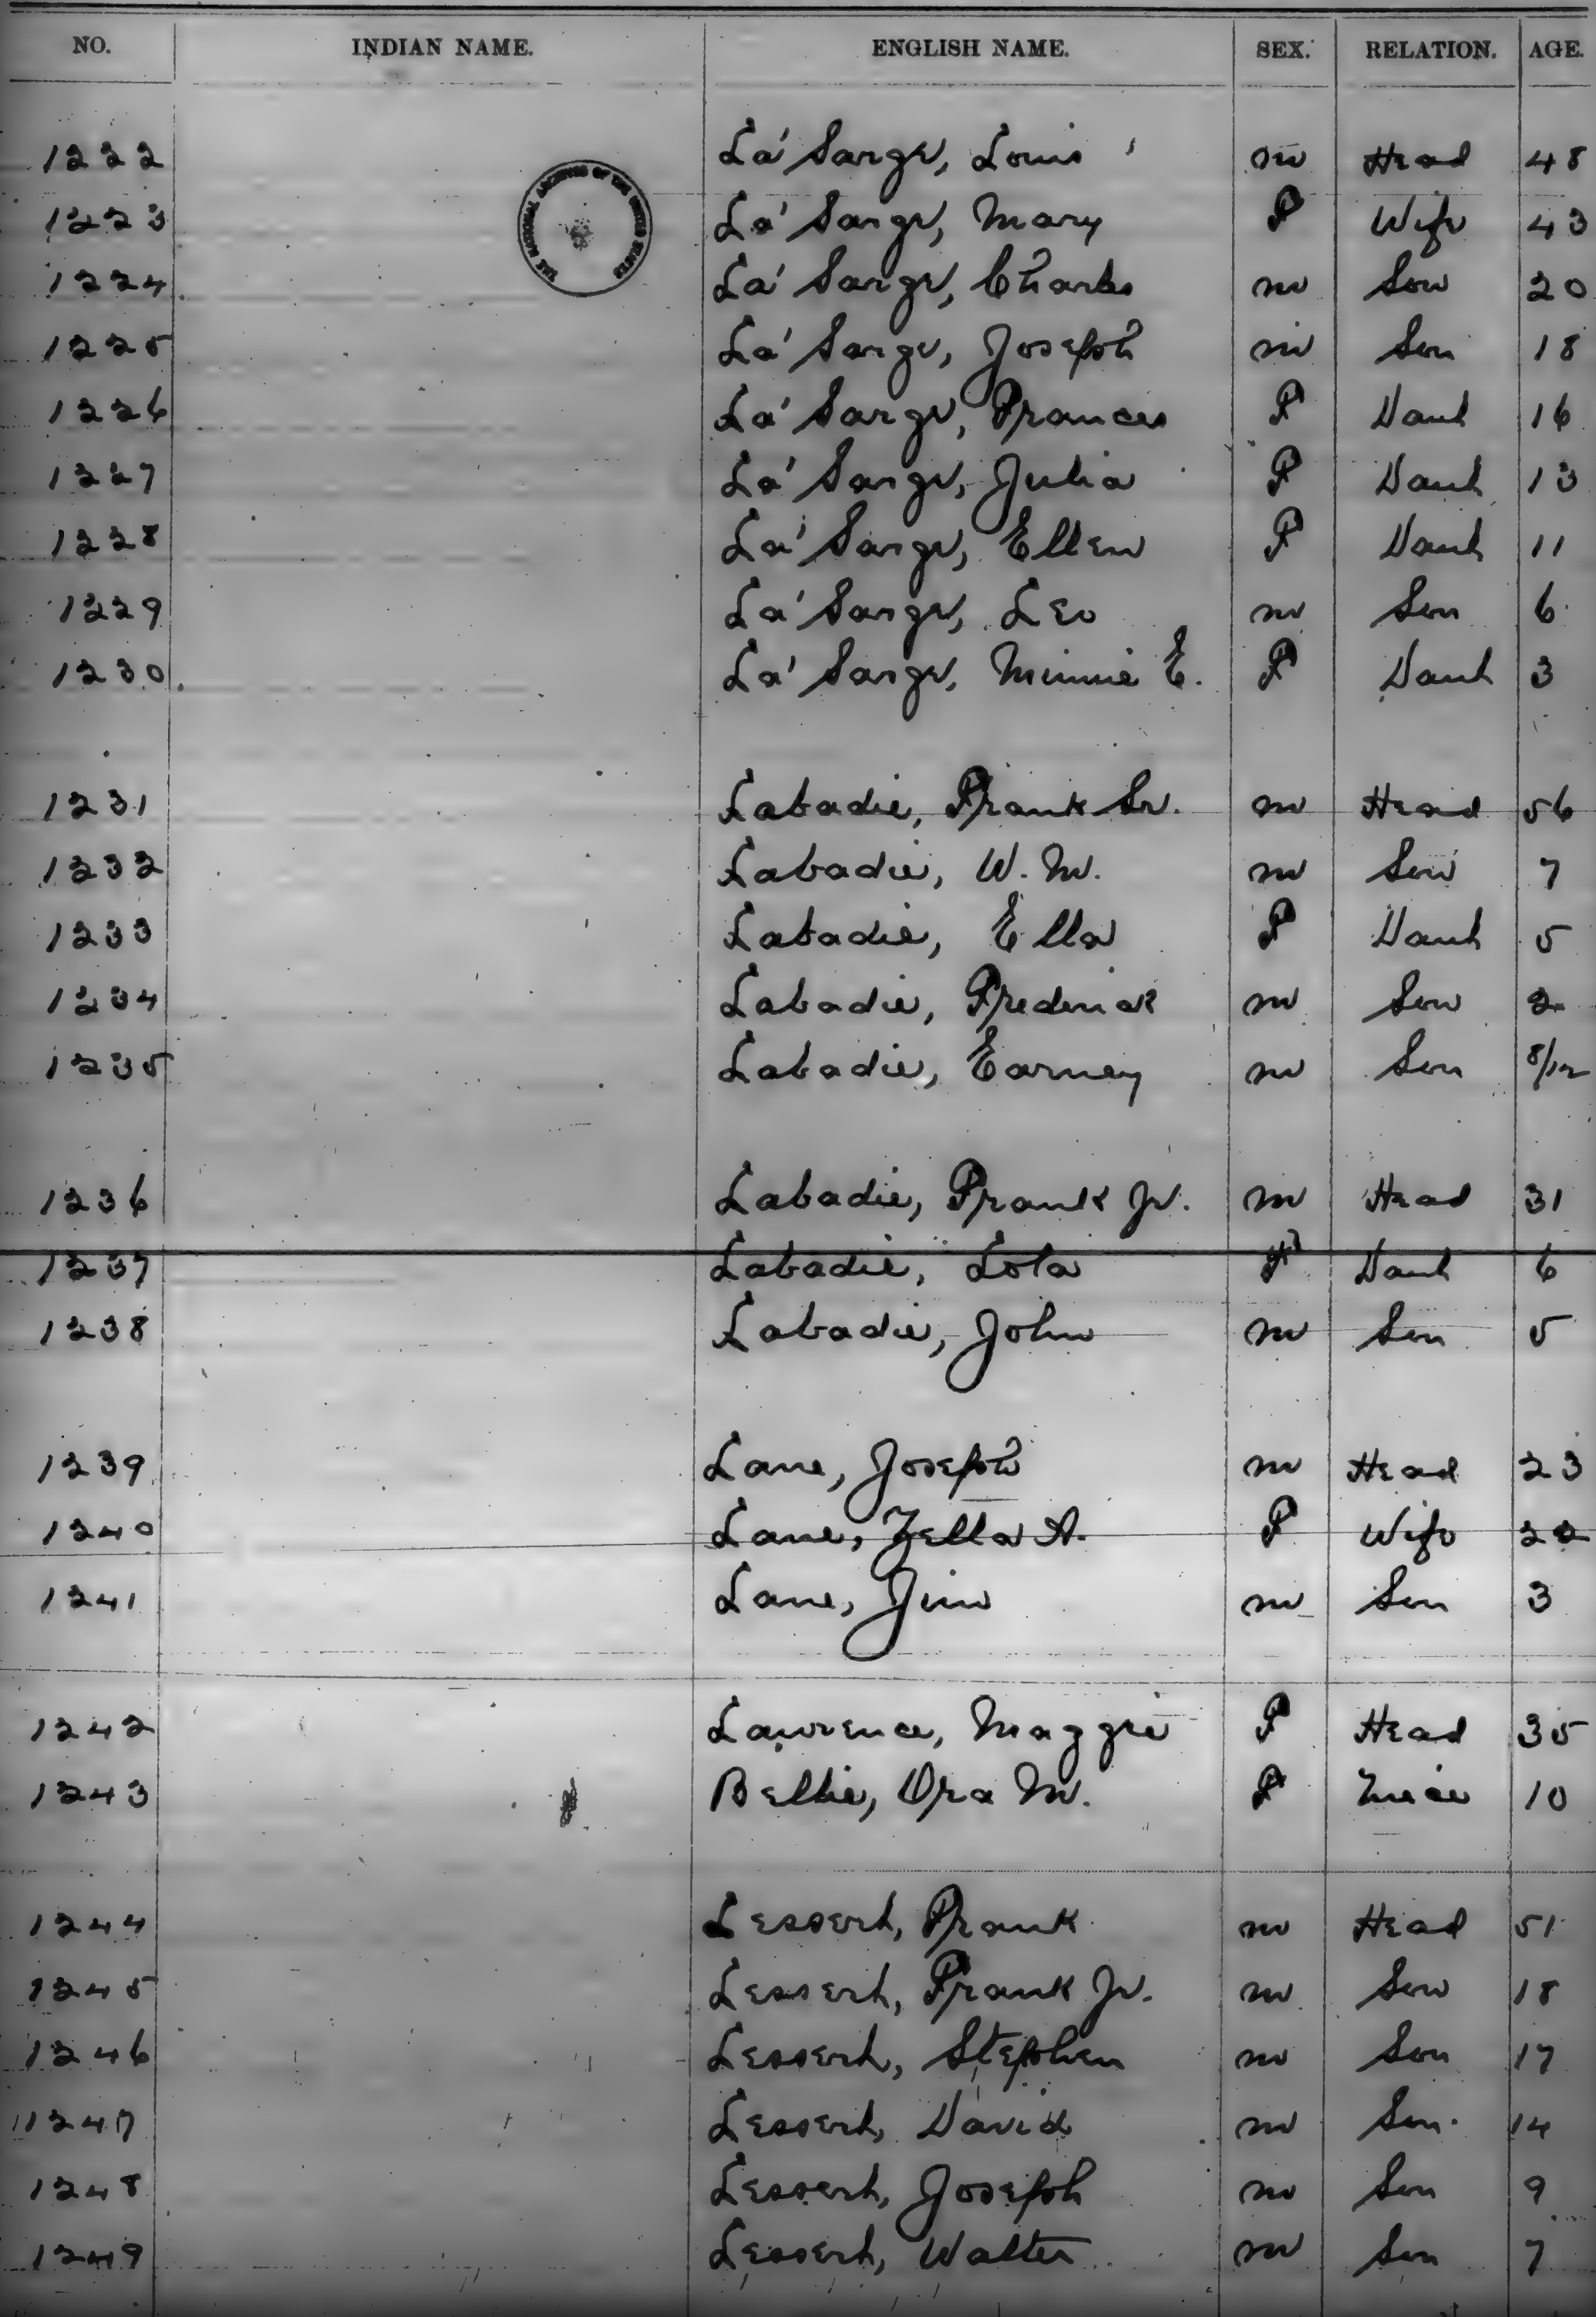 NO. INDIAN NAME. ENGLISH NAME. SEX. RELATION. AGE.
1222 La' Sarge, Louis m Head 48
THE NATIONAL ARCHIVES OF THE UNITED STATES
1223 La' Sarge, Mary F Wife 43
1224 La' Sarge, Charles m Son 20
1225 La' Sarge, Joseph m Son 18
1226 La' Sarge, Frances F Dauh 16
1227 La' Sarge, Julia F Dauh 13
1228 La' Sarge, Ellen F Dauh 11
1229 La' Sarge, Leo m Son 6
1230 La' Sarge, Minnie E. F Dauh 3
1231 Labadie, Frank Sr. m Head 56
1232 Labadie, W. M. m Son 7
1233 Labadie, Ella F Dauh 5
1234 Labadie, Frederick m Son 2
1235 Labadie, Earney m Son 8/12
1236 Labadie, Frank Jr. m Head 31
1237 Labadie, Lola F Dauh 6
1238 Labadie, John m Son 5
1239 Lane, Joseph m Head 23
1240 Lane, Zella A. F Wife 22
1241 Lane, Jim m Son 3
1242 Lawrence, Maggie F Head 35
1243 Bellie, Ora M. F Niece 10
1244 Lessert, Frank m Head 51
1245 Lessert, Frank Jr. m Son 18
1246 Lessert, Stephen m Son 17
1247 Lessert, David m Son 14
1248 Lessert, Joseph m Son 9
1249 Lessert, Walter m Son 7